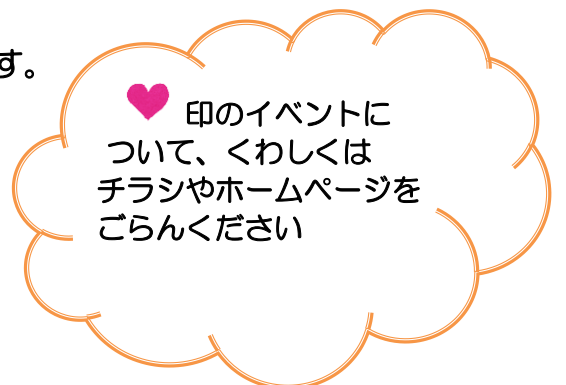 す。
♥ 印のイベントに
ついて、くわしくは
チラシやホームページを
ごらんください